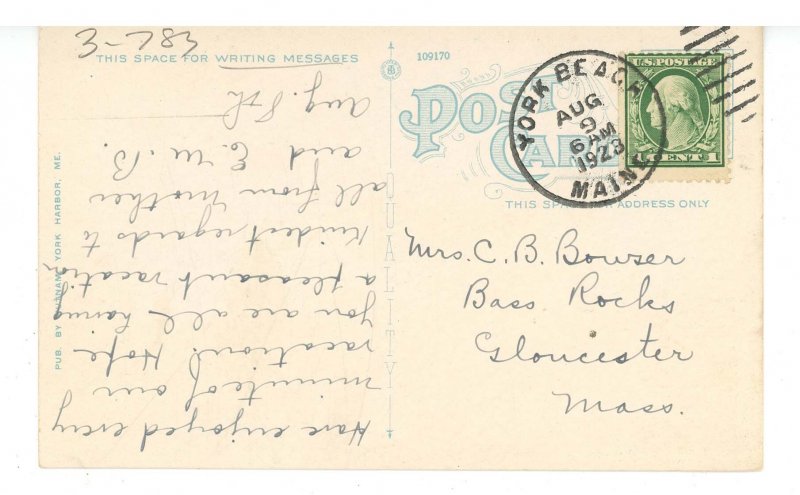 3-783
THIS SPACE FOR WRITING MESSAGES
109170
POST
CARD
THIS SPACE FOR ADDRESS ONLY
QUALITY
PUB. BY PUTNAM, YORK HARBOR, ME.
YORK BEACH
AUG
9
6 AM
1923
MAINE
U.S. POSTAGE
1 CENT 1
Mrs. C. B. Bowser
Bass Rocks
Gloucester
Mass.
Have enjoyed every
minute of our
vacation. Hope
you are all having
a pleasant vacation
Kindest regards to
all from Mother
and E. M. B.
Aug. 8th